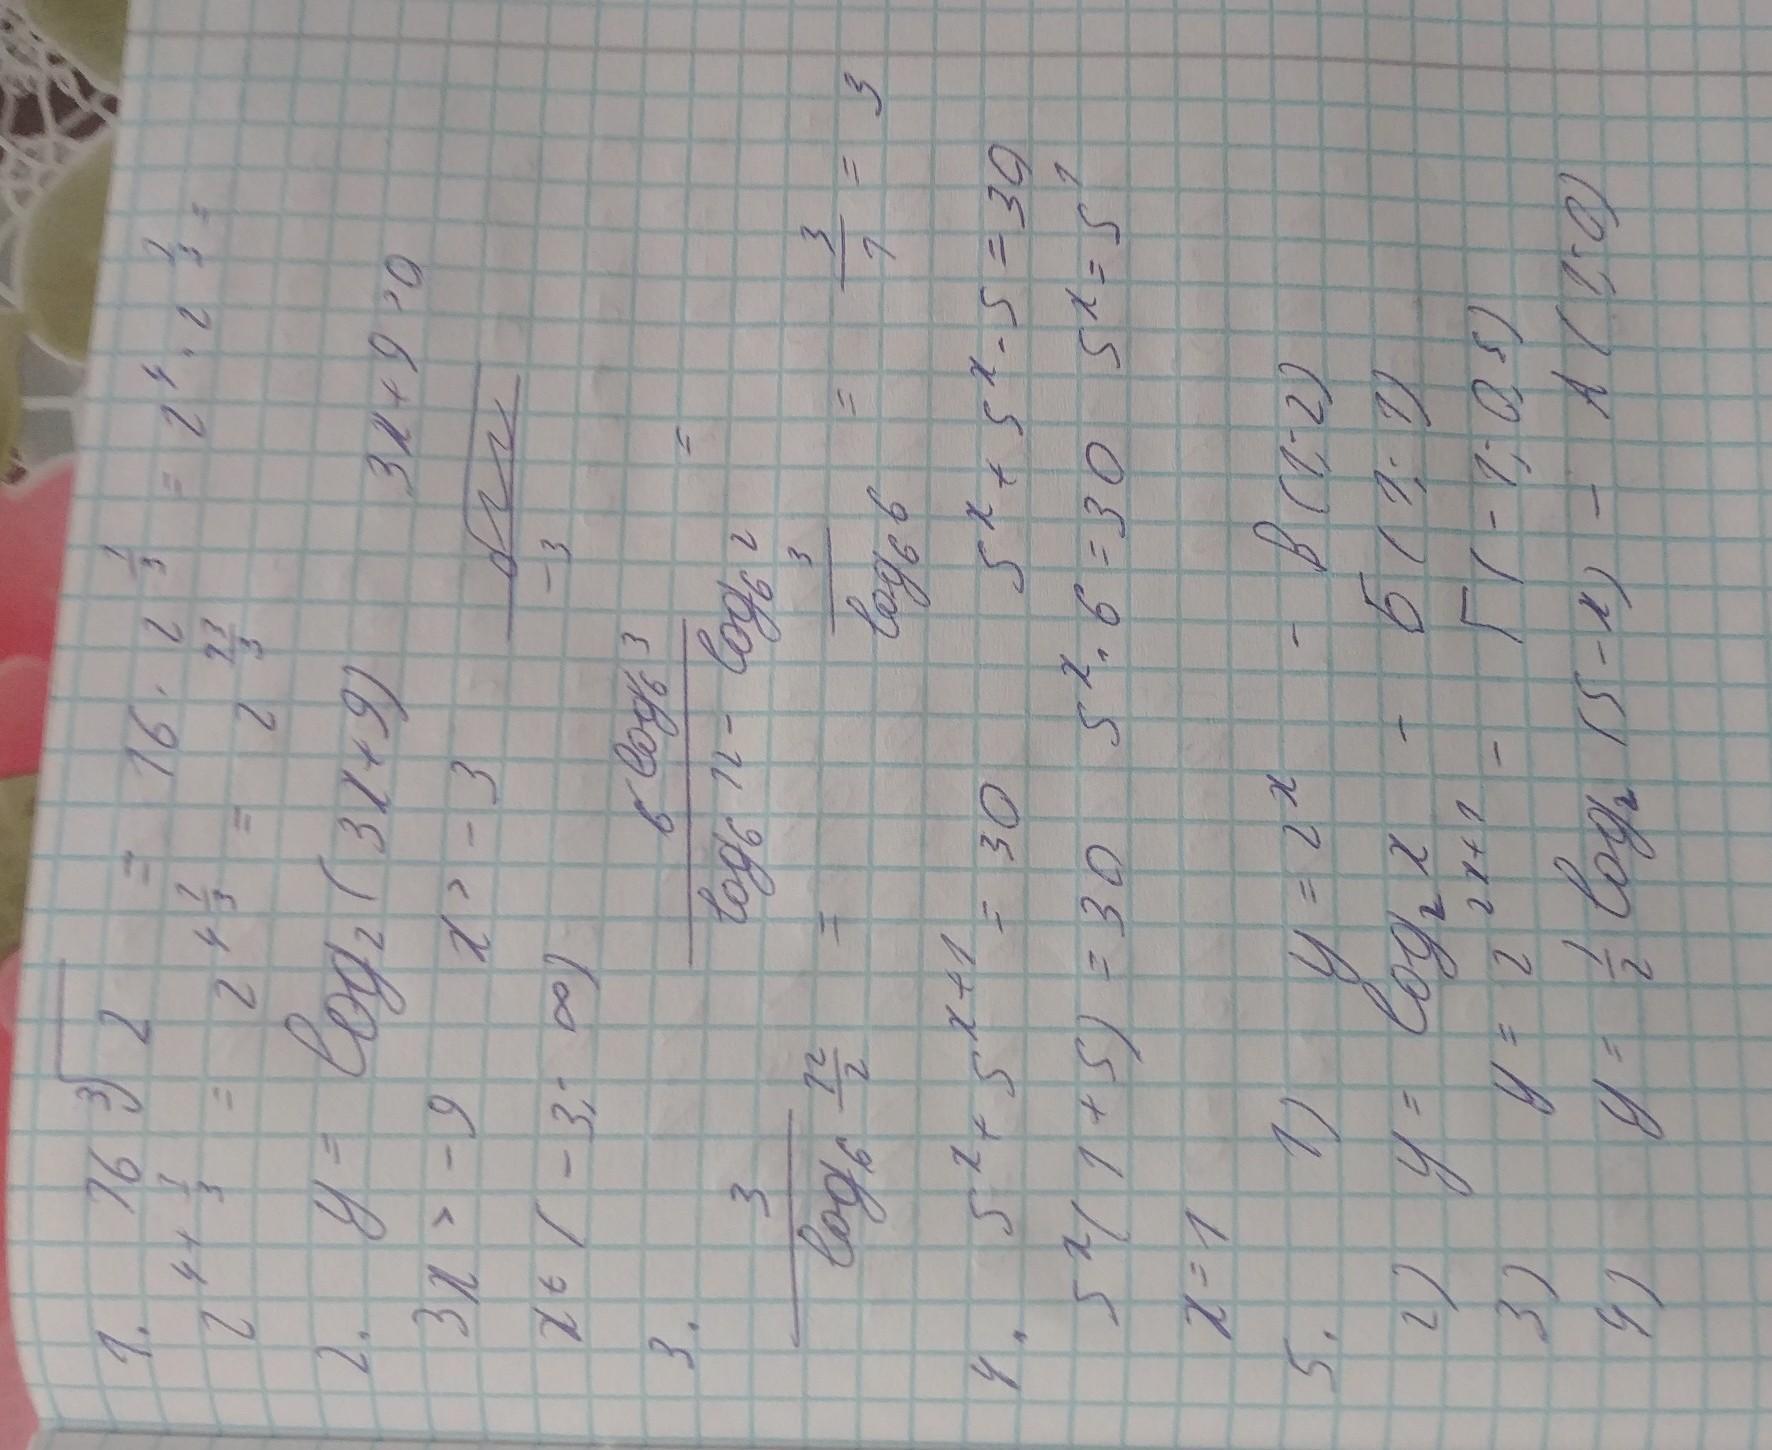 1. 16 ∛2 = 16 · 2^(1/3) = 2^4 · 2^(1/3) =
2^(4+1/3) = 2^(4 1/3) = 2^(13/3)
2. y = log₂(3x+9) 3x+9>0
3x > -9 x > -3
-3
x ∈ (-3; ∞)
3. 6^(log₆3) / (log₆12 - log₆2) =
3 / (log₆ 12/2) = 3 / (log₆6) = 3/1 = 3
4. 5^x + 5^(x+1) = 30 5^x + 5^x · 5 = 30
5^x(1+5) = 30 5^x · 6 = 30 5^x = 5^1
x = 1
5. 1) y = 2^x - В (1; 2)
2) y = log₂x - Б (1; 1)
3) y = 2^(2x+1) - Г (-1; 0,5)
4) y = 1/2 log₂(5-x) - А (1; 0)